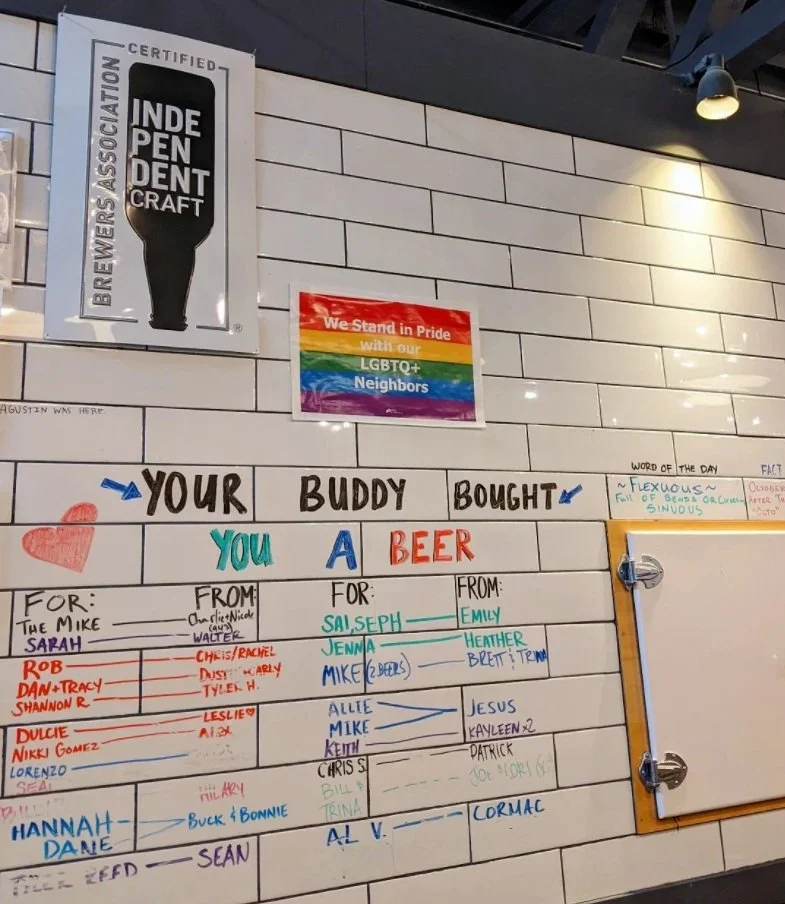 CERTIFIED
BREWERS ASSOCIATION
INDE
PEN
DENT
CRAFT
®
We Stand in Pride
with our
LGBTQ+
Neighbors
AGUSTIN WAS HERE
YOUR BUDDY BOUGHT
YOU A BEER
WORD OF THE DAY
~FLEXUOUS~
FULL OF BENDS OR
SINUOUS
FACT
OCTOBER
AFTER
"OCTO"
FOR: FROM:
THE MIKE Charlie+Nicole
SARAH WALTER
ROB CHRIS/RACHEL
DAN+TRACY CARLY
SHANNON R. TYLER H.
DULCIE LESLIE♡
NIKKI GOMEZ ALEX
LORENZO
HILARY
HANNAH BUCK & BONNIE
DANE
REED SEAN
FOR: FROM:
SAI, SEPH EMILY
JENNA HEATHER
MIKE (2 BEERS) BRETT & TRINA
ALLIE JESUS
MIKE
KEITH KAYLEEN x2
CHRIS S. PATRICK
BILL & JOE
TRINA
AL V. CORMAC